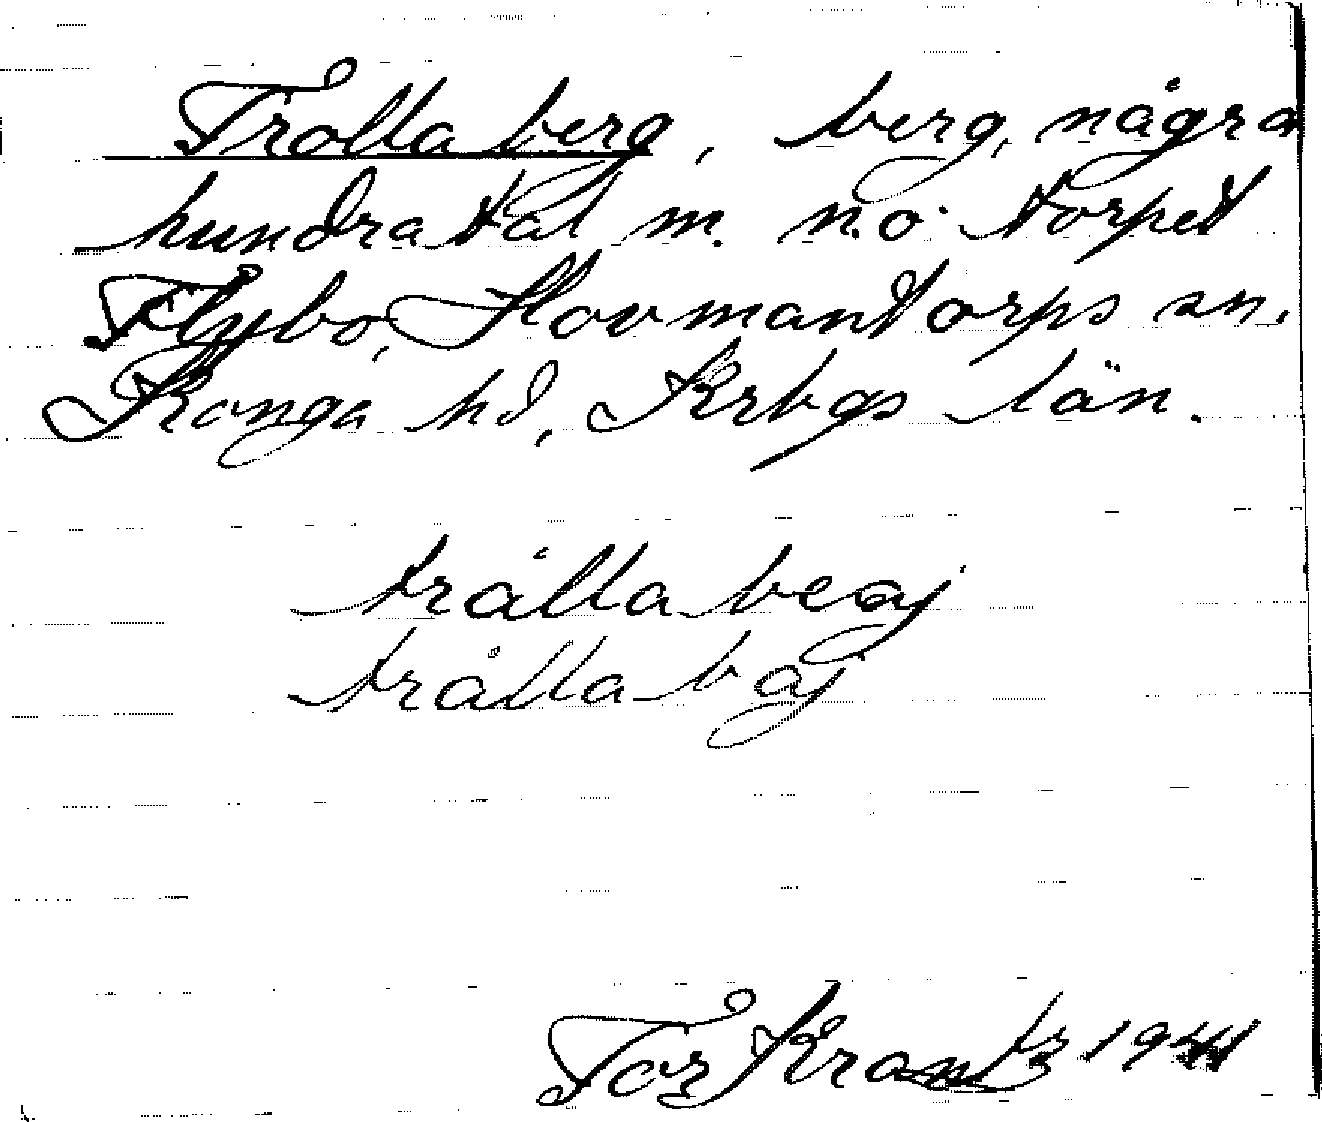 Trollaberg, berg, några
hundratal m. n.o. torpet
Flybo, Hovmantorps sn,
Konga hd, Krbgs län.
trålla beaj
trålla baj
Tor Krantz 1941